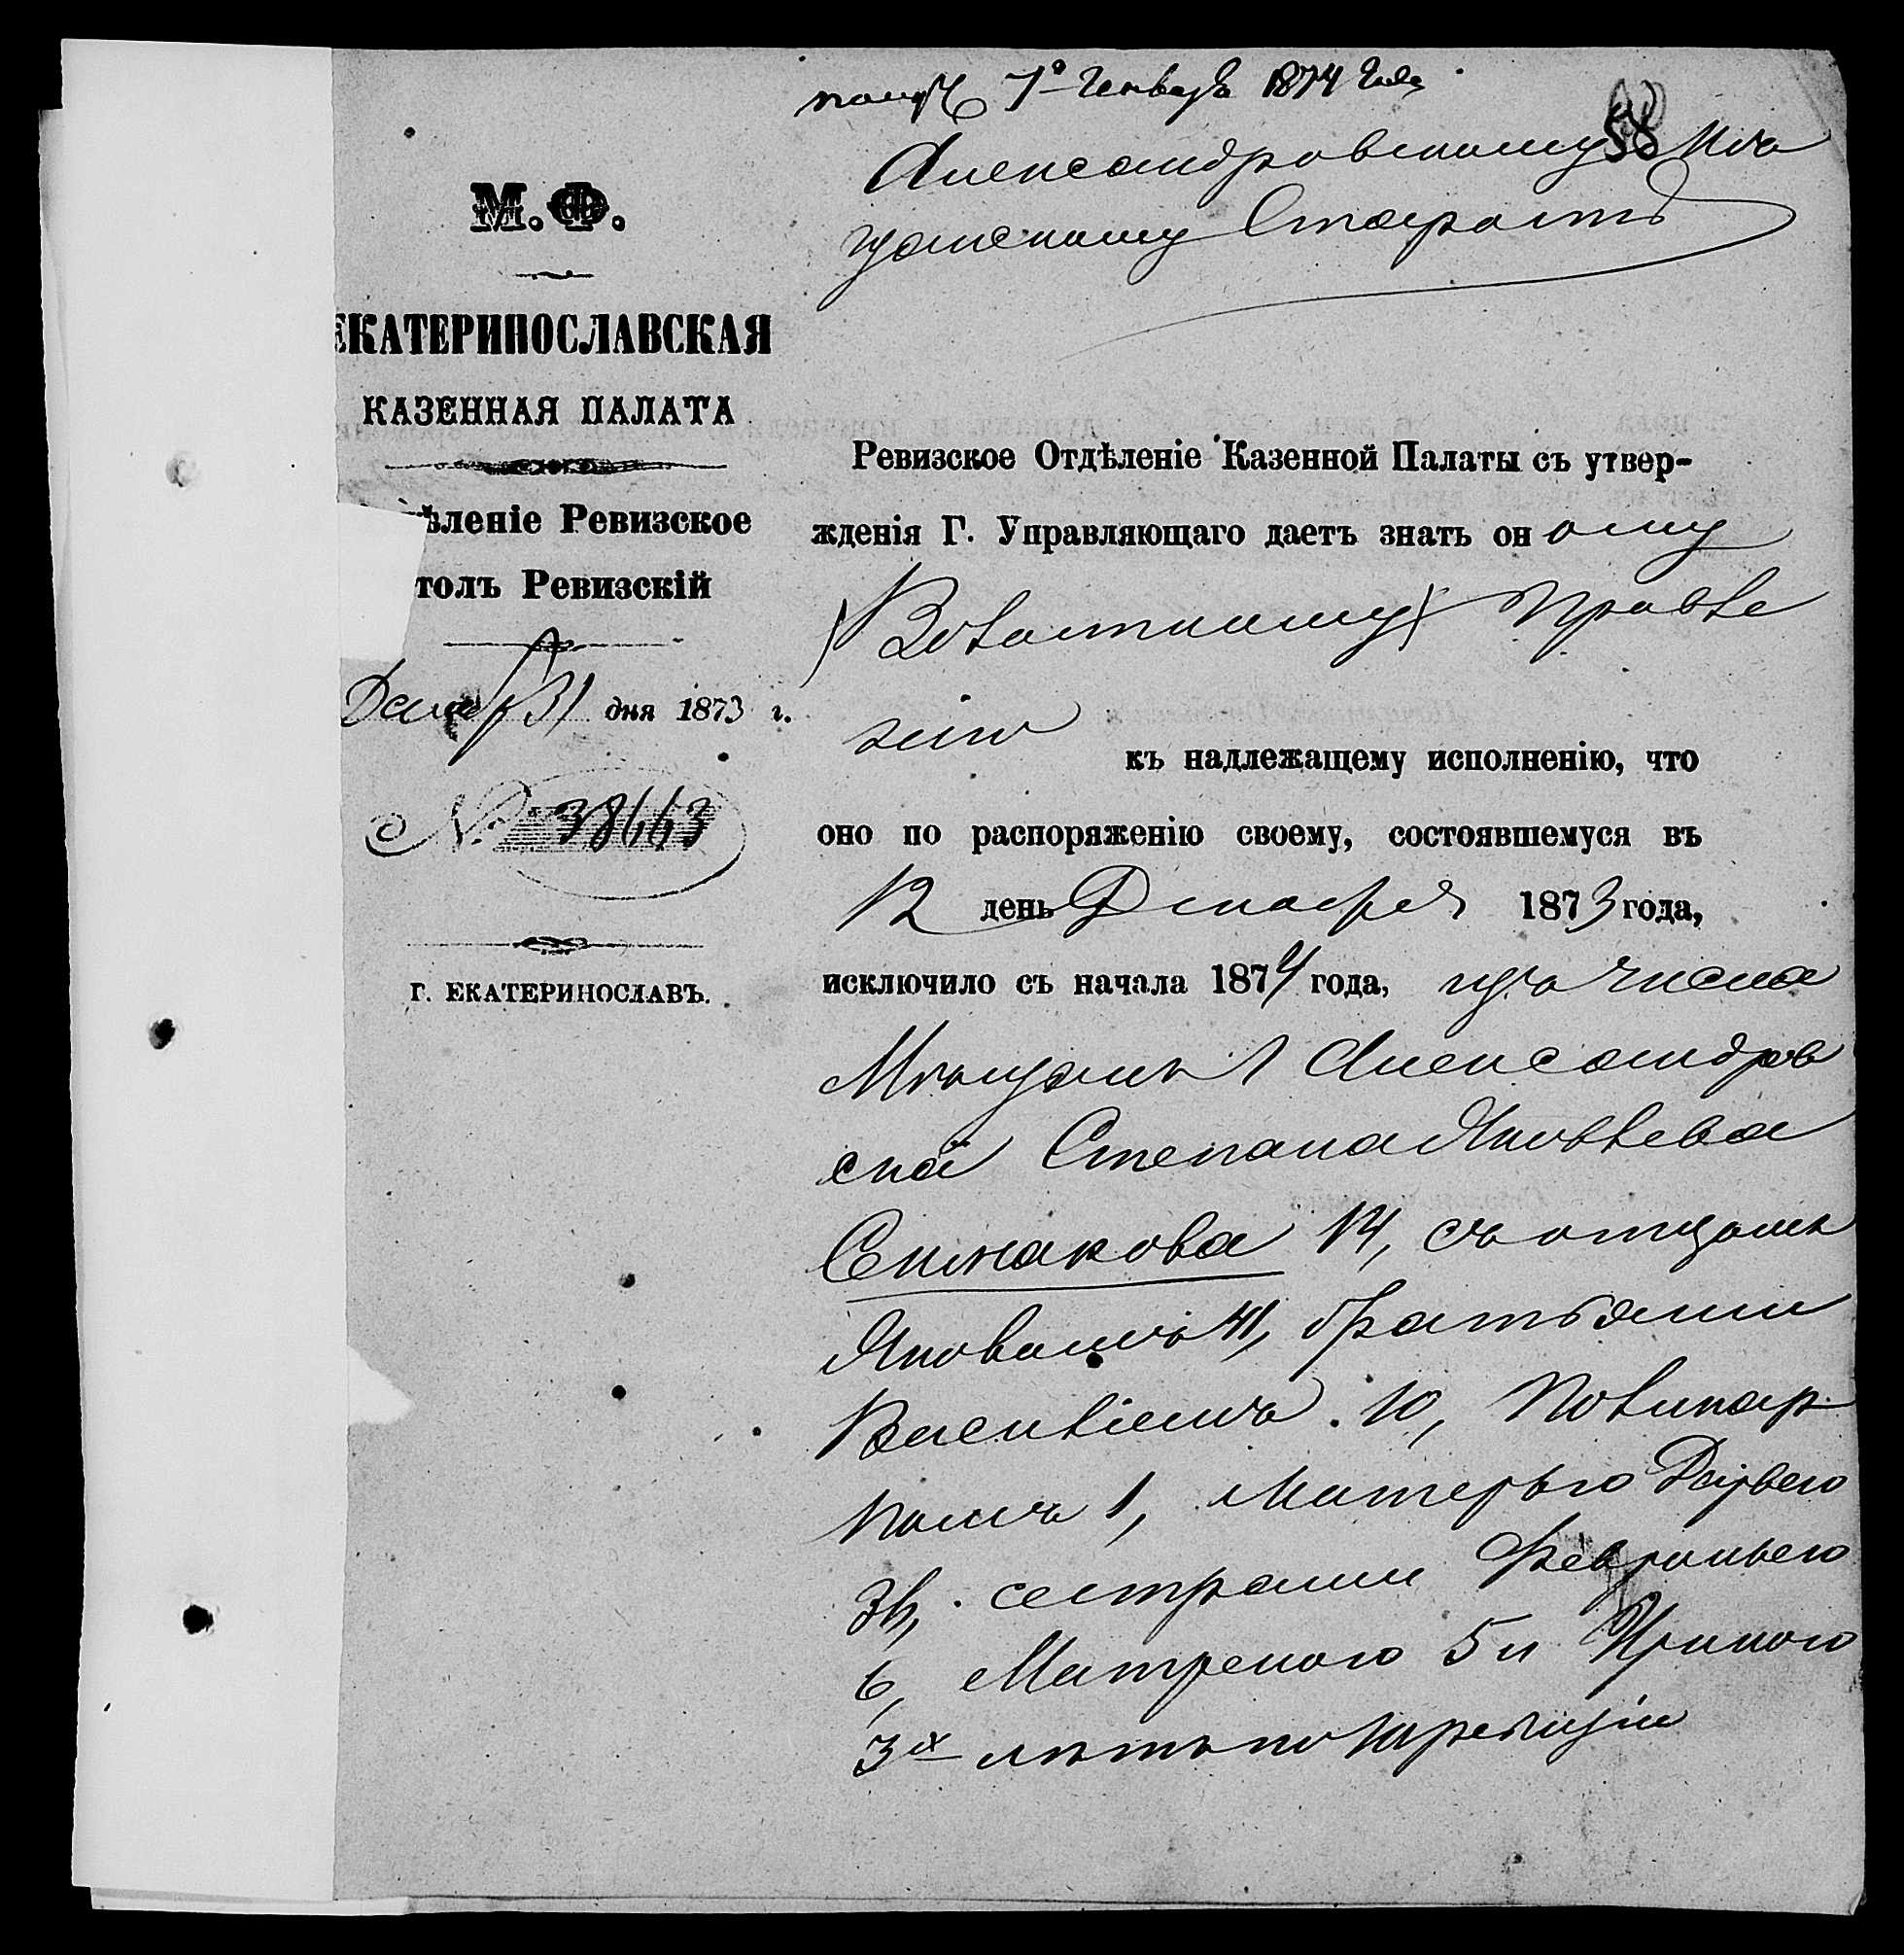 получ 7го Генваря 1874 года
58
Александровскому Мѣ
щанскому Старостѣ
М. Ф.
ЕКАТЕРИНОСЛАВСКАЯ
КАЗЕННАЯ ПАЛАТА
ѣленіе Ревизское
толъ Ревизскій
Декабр 31 дня 1873 г.
№ 38663
Г. ЕКАТЕРИНОСЛАВЪ.
Ревизское Отдѣленіе Казенной Палаты съ утвер-
жденія Г. Управляющаго даетъ знать оному
(Волостному) Правле
нію
къ надлежащему исполненію, что
оно по распоряженію своему, состоявшемуся въ
12 день Декабря 1873 года,
исключило съ начала 1874 года, изъ числа
Мѣщанъ Александров
ска Степана Яковлева
14, съ отцомъ
Яковомъ 41, братьями
Василіемъ 10, Поликар
помъ 1, матерью Дарьею
36, сестрами Февроньею
6, Матреною 5 и Ириною
3х лѣтъ по 10 ревизіи